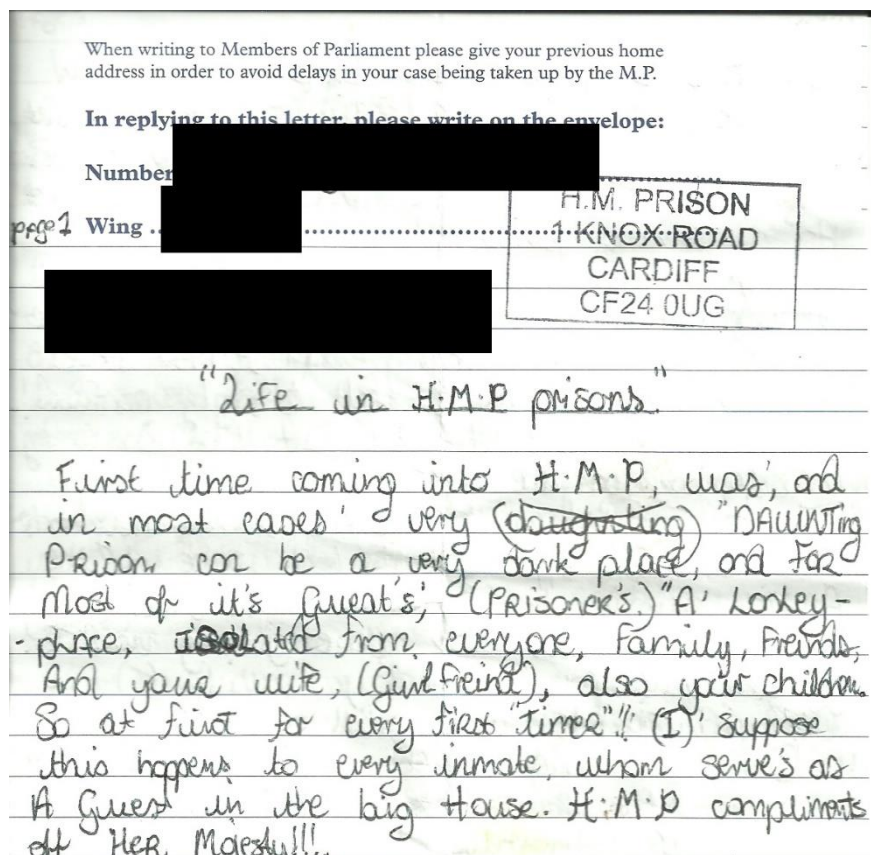 When writing to Members of Parliament please give your previous home
address in order to avoid delays in your case being taken up by the M.P.
In replying to this letter, please write on the envelope:
Number
H.M. PRISON
page 1 Wing
1 KNOX ROAD
CARDIFF
CF24 0UG
"Life in H.M.P prisons."
First time coming into H.M.P, was, and
in most cases' very (daugusting) "DAUNTing
Prison can be a very dark place, and for
Most of it's Guest's, (PRisoner's.) "A' Lonley-
-place, ISOLated from everyone, Family, Freinds,
And your wife, (Girl freind), also your children.
So at first for every first "timer"!! (I)' suppose
this happens to every inmate, whom serve's as
A Guest in the big House. H.M.P compliments
off HER Majesty!!!